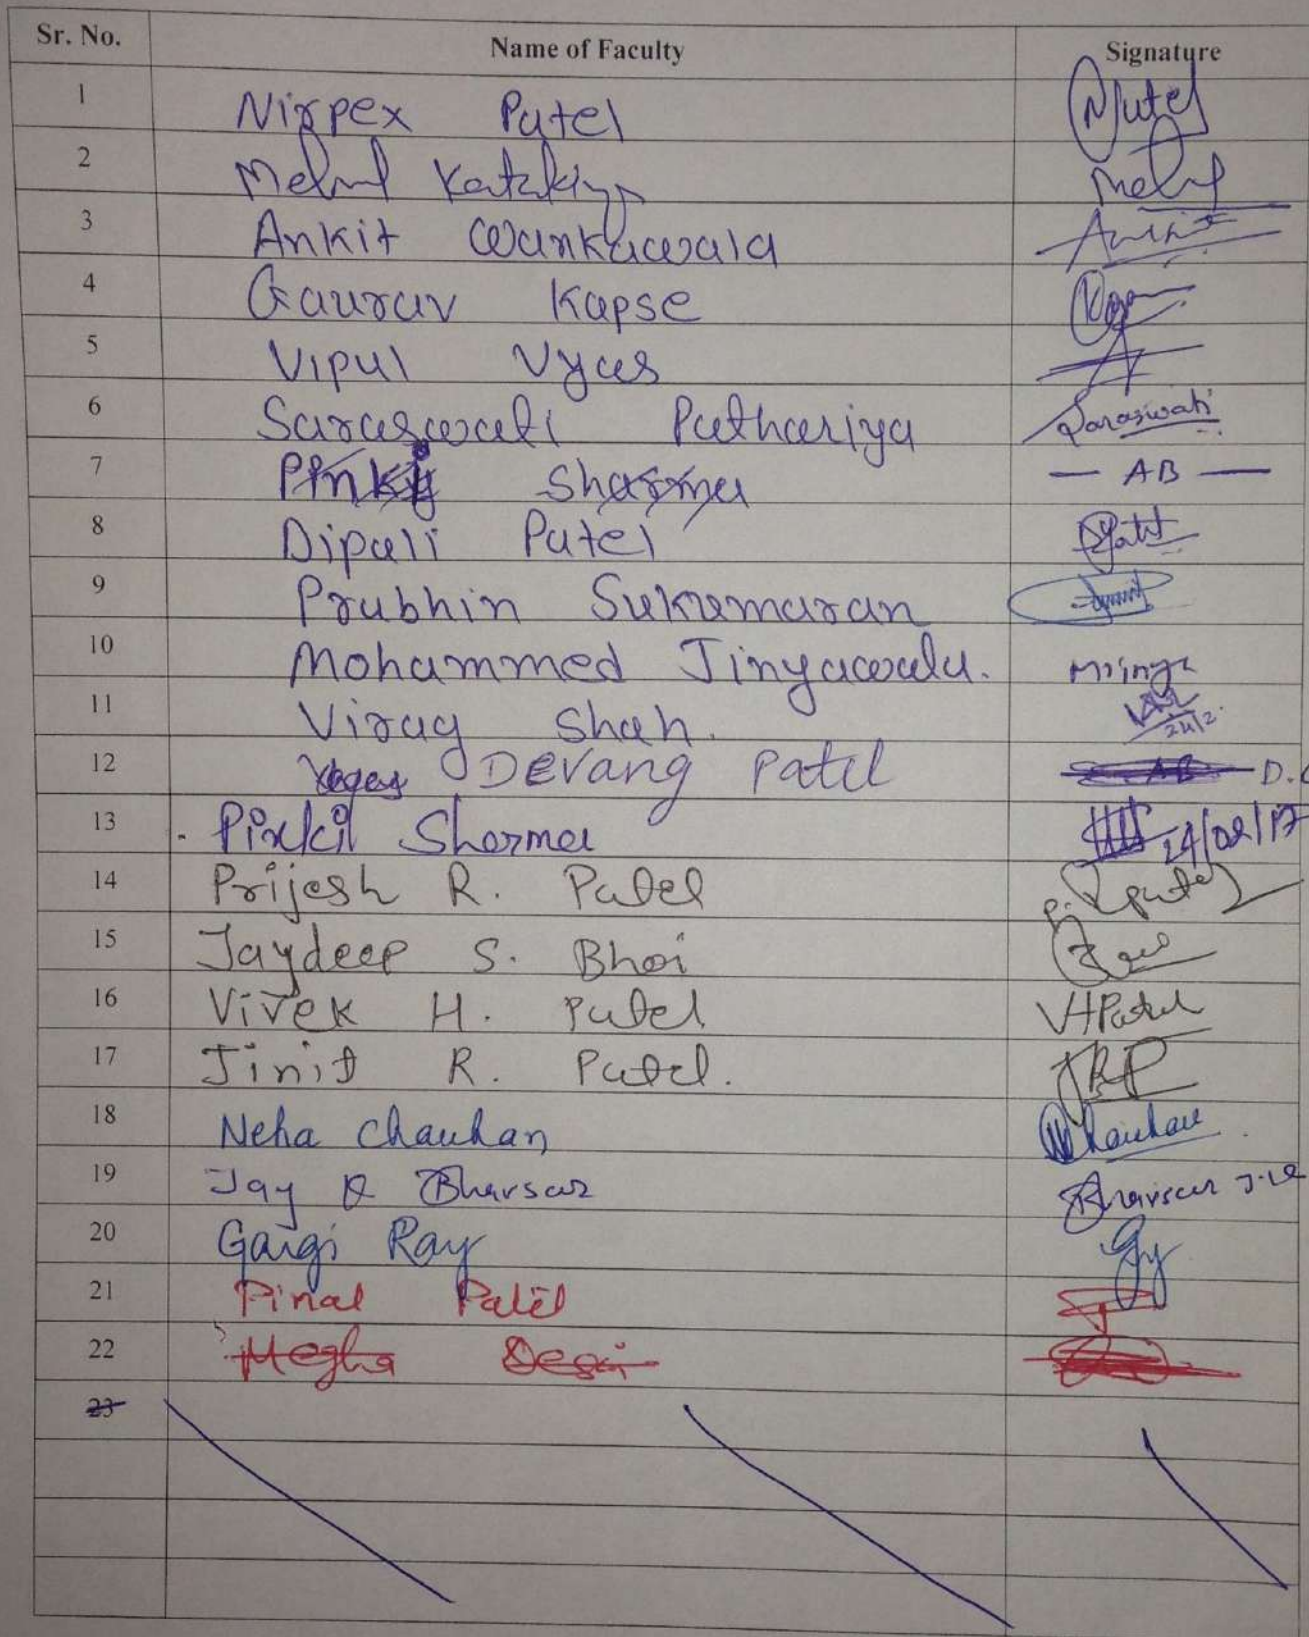 Sr. No. Name of Faculty Signature
1 Nirpex Patel NPatel
2 Mehul Katakiya Mehul
3 Ankit Wankawala Ankit
4 Gaurav Kapse
5 Vipul Vyas
6 Saraswati Pathariya Saraswati
7 Pinky Sharma — AB —
8 Dipali Patel
9 Prabhin Sukumaran
10 Mohammed Jinyawala.
11 Virag Shah. 24/2.
12 DEVANG Patel AB D.
13 Sharma 24/02/17
14 Prijesh R. Patel P.R.Patel
15 Jaydeep S. Bhoi
16 Vivek H. Patel VHPatel
17 Jinit R. Patel. JRP
18 Neha Chauhan NChauhan
19 Jay R Bhavsar Bhavsar J.R
20 Gargi Ray
21 Pinal Patel
22 Megha Desai
23